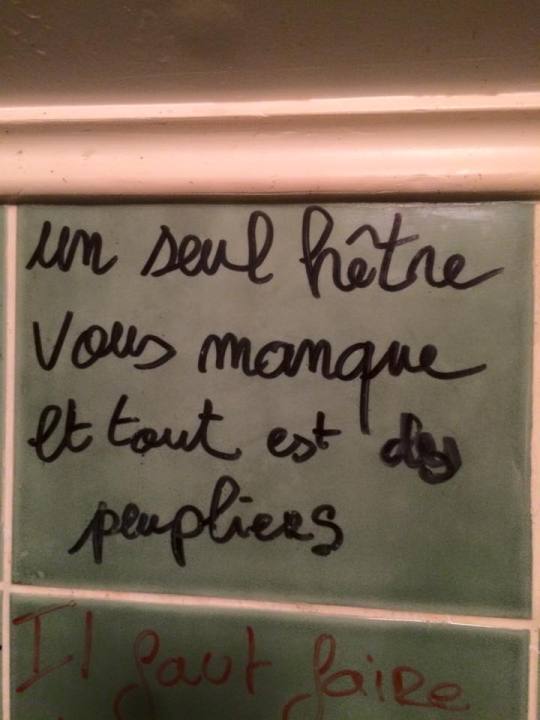 un seul hêtre
vous manque
et tout est
peupliers
Il faut faire